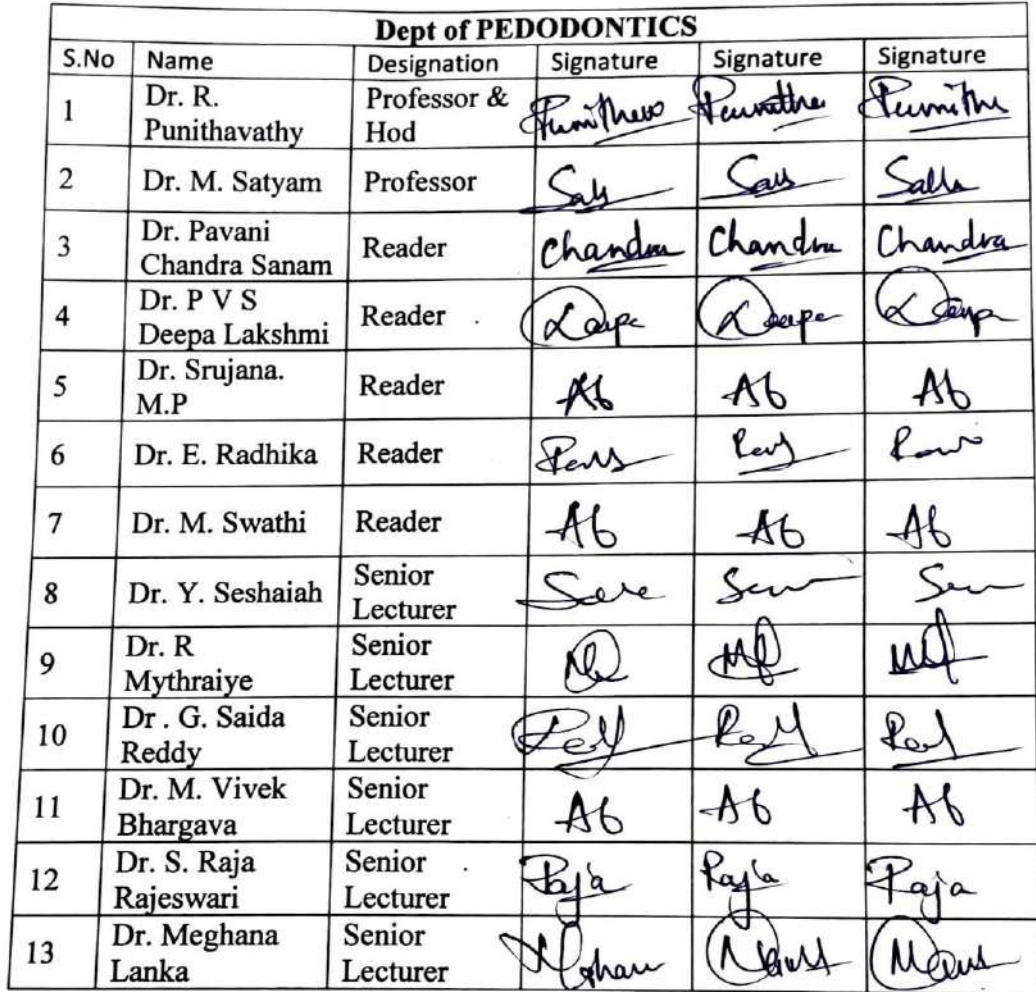 Dept of PEDODONTICS
S.No Name Designation Signature Signature Signature
1 Dr. R. Punithavathy Professor & Hod
2 Dr. M. Satyam Professor
3 Dr. Pavani Chandra Sanam Reader Chandra Chandra Chandra
4 Dr. P V S Deepa Lakshmi Reader
5 Dr. Srujana. M.P Reader Ab Ab Ab
6 Dr. E. Radhika Reader
7 Dr. M. Swathi Reader Ab Ab Ab
8 Dr. Y. Seshaiah Senior Lecturer
9 Dr. R Mythraiye Senior Lecturer
10 Dr . G. Saida Reddy Senior Lecturer
11 Dr. M. Vivek Bhargava Senior Lecturer Ab Ab Ab
12 Dr. S. Raja Rajeswari Senior Lecturer Raja Raja Raja
13 Dr. Meghana Lanka Senior Lecturer